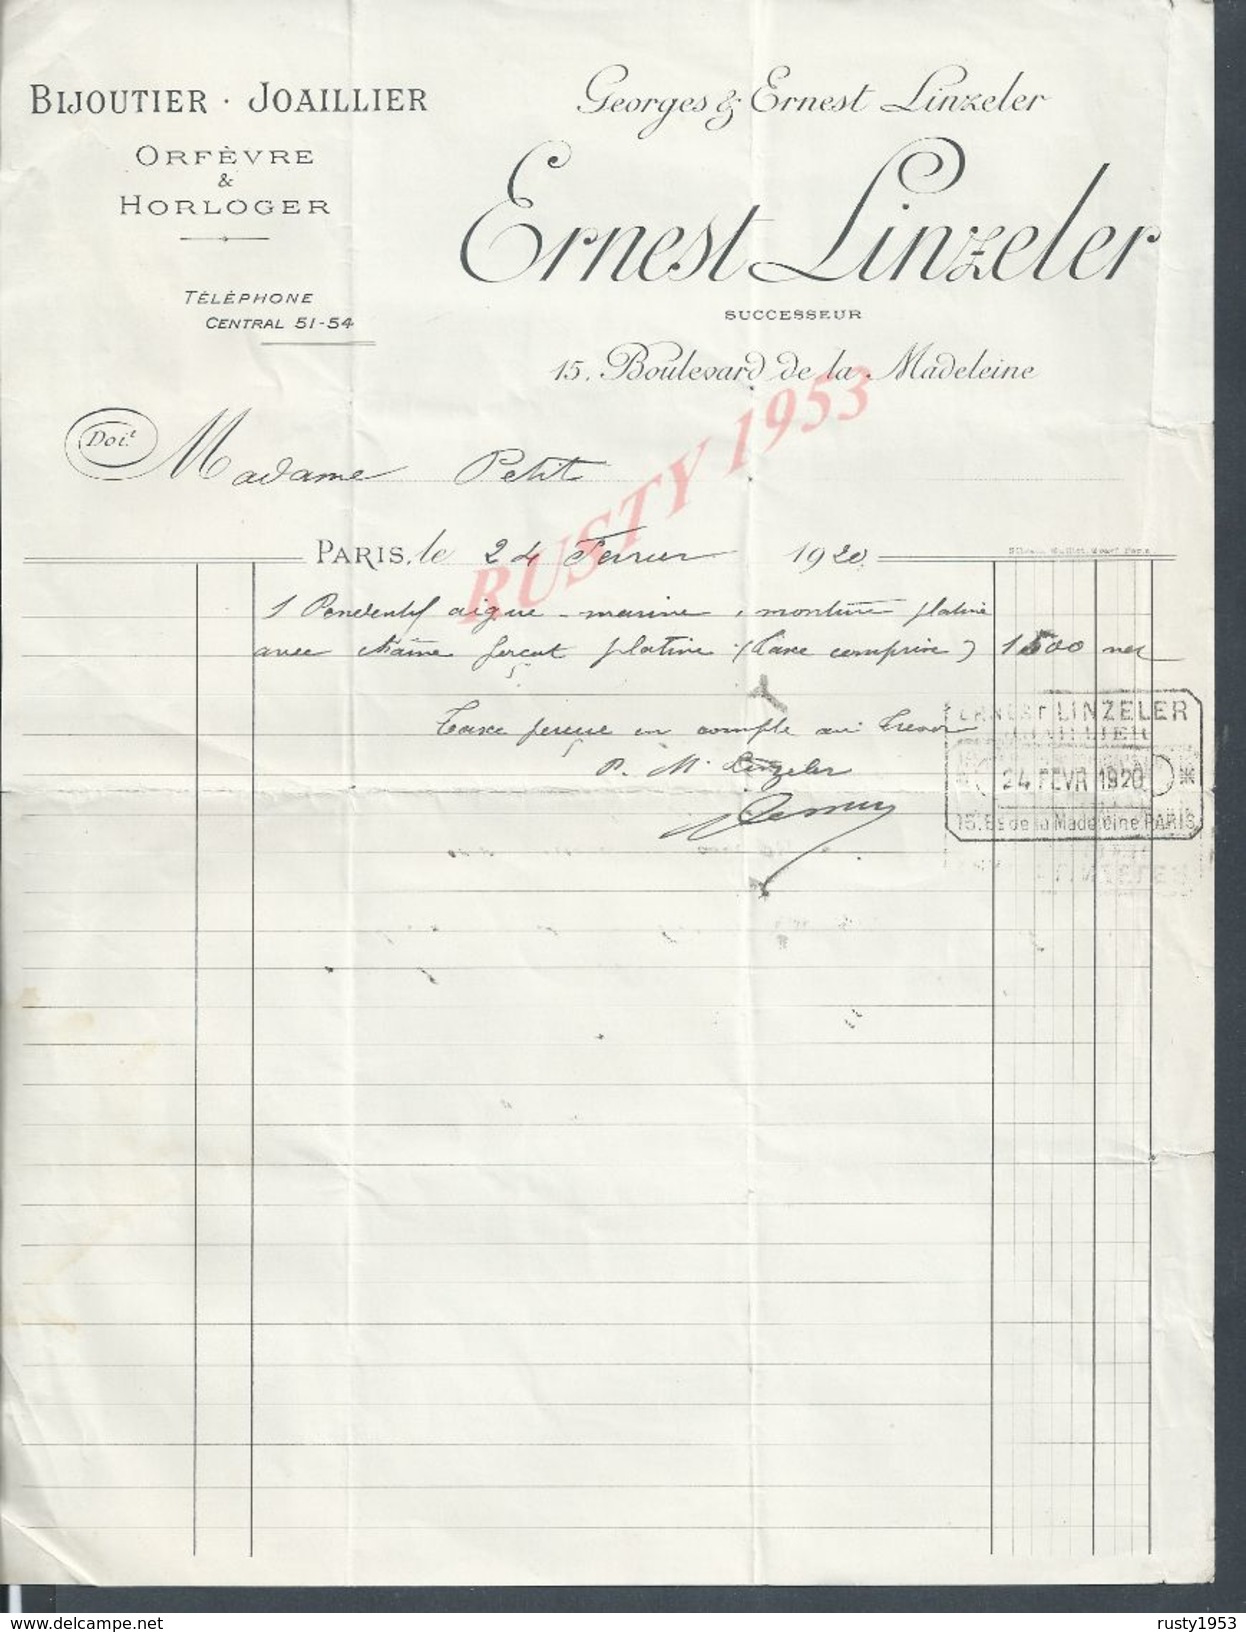 BIJOUTIER · JOAILLIER
ORFÈVRE
&
HORLOGER
TÉLÉPHONE
CENTRAL 51-54
Georges & Ernest Linzeler
Ernest Linzeler
SUCCESSEUR
15, Boulevard de la Madeleine
RUSTY 1953
Doit Madame Petit
PARIS, le 24 Fevrier 1920
1 Pendentif aigue-marine, monture platine
avec chaîne forcat platine (taxe comprise) 1500 net
Taxe perçue en compte au Tresor
P. M. Linzeler
ERNEST LINZELER
JOAILLIER
24 FEVR 1920
15, Bd de la Madeleine PARIS
www.delcampe.net
rusty1953